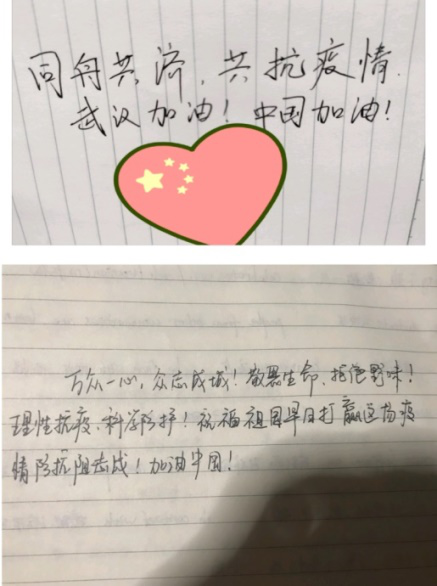 同舟共济，共抗疫情.
武汉加油！中国加油！
万众一心，众志成城！敬畏生命、拒绝野味！
理性抗疫、科学防护！祝福祖国早日打赢这场疫
情防抗阻击战！加油中国！